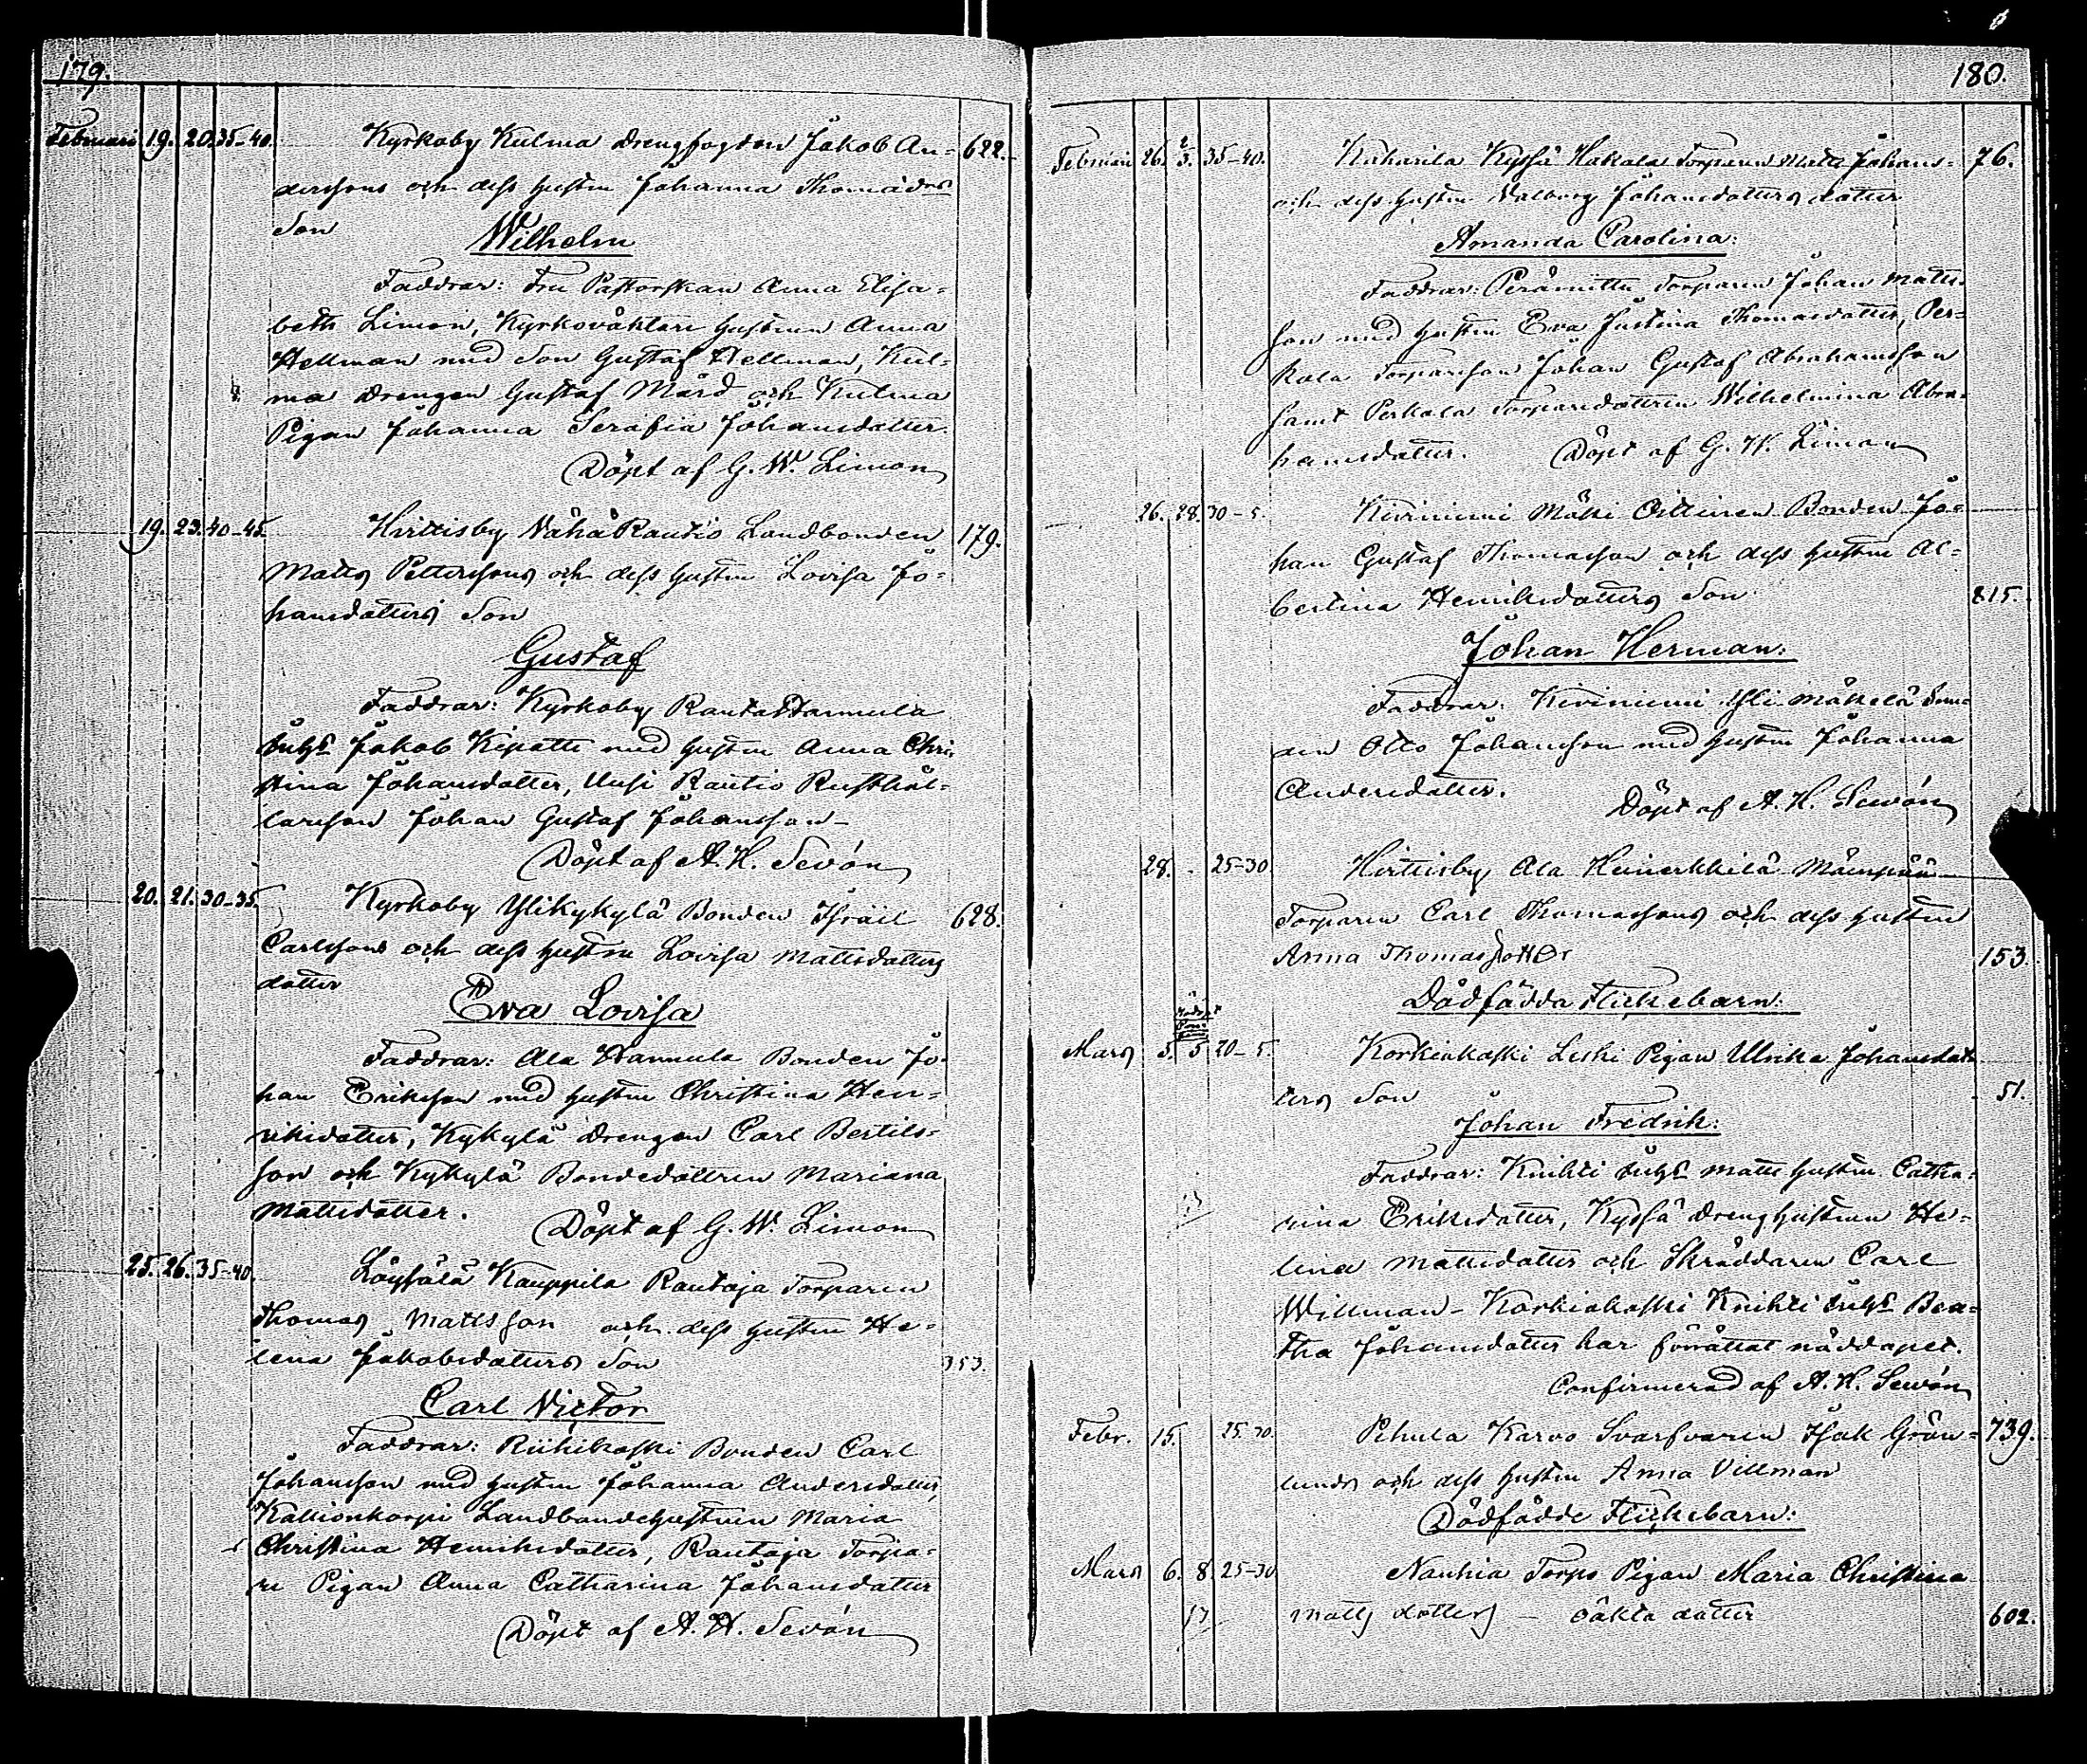 179.
Februari 19. 20. 35-40. Kyrkoby Kulma drengfogden Jakob An= 622.
derssons och dess hustru Johanna Thomædrs
Son
Wilhelm
Faddrar: Fru Pastorskan Anna Elisa=
beth Limon, Kyrkovåktare hustrun Anna
Hellman med Son Gustaf Hellman, Kul=
ma drengen Gustaf Mård och Kulma
Pigan Johanna Serafia Johansdotter.
Döpt af G. W. Limon
19. 23. 40-45. Hirttisby NähäRautio Landbonden 179.
Matts Petterssons och dess hustru Lovisa Jo=
hansdotters Son
Gustaf
Faddrar: Kyrkoby Rauta Hannula
Inhs Jakob Kepatti med hustru Anna Chri
stina Johansdotter, Uusi Rautio Rusthål=
larsson Johan Gustaf Johansson-
Döpt af A. H. Sevón
20. 21. 30-35. Kyrkoby Ylikykylä Bonden Israil 628.
Carlssons och dess hustru Lovisa Mattsdotters
dotter
Eva Lovisa
Faddrar: Ala Hannula Bonden Jo-
han Eriksson med hustru Christina Hen=
riksdotter, Kykylä drengen Carl Bertils=
son och Kykylä Bondedottren Mariana
Mattsdotter.
Döpt af G. W. Limon
25. 26. 35-40. Löysälä Kauppila Rautaja Torparen
Thomas Mattsson och dess hustru He=
lena Jakobsdotters Son 353.
Carl Victor
Faddrar: Riihikoski Bonden Carl
Johansson med hustru Johanna Andersdotter,
Kallionkorpi Landbondehustrun Maria
Christina Henriksdotter, Rautaja Torpa=
re Pigan Anna Catharina Johansdotter
Döpt af A. H. Sevón
180.
Februari 26. 2/3. 35-40. Kuharila Kyssä Hakala Torparen Matts Johans= 76.
och dess hustru Valborg Johansdotters dotter
Amanda Carolina:
Faddrar: Perämittu Torparen Johan Matts
son med hustru Eva Justina Thomasdotter, Per=
kola Torparson Johan Gustaf Abrahamsson
samt Perkola Torparedottren Wilhelmina Abra=
hamsdotter. Döpt af G. W. Limon
26. 28. 30-5. Kiviniemi Mäki Oittinen Bonden Jo=
han Gustaf Thomasson och dess hustru Al=
bertina Henriksdotters Son 815.
Johan Herman:
Faddrar: Kiviniemi Yli Mäkelä Bon=
den Otto Johansson med hustru Johanna
Andersdotter.
Döpt af A. H. Sewón
28. - 25-30 Hirttisby Ala Heinerkkilä Mäenpää
Torparen Carl Thomassons och dess hustru
Anna Thomasdotter 153.
Dödfödda Flickebarn:
Mars 5. 5 20-5. Korkiakoski Leski Pigan Ulrika Johansdot
ters Son 51.
Johan Fredrik:
Faddrar: Knihti Inhs Matts hustru Catha=
rina Eriksdotter, Kyssä Drenghustrun He=
lena Mattsdotter och Skräddaren Carl
Willman - Korkiakoski Knihti Inhs Bea=
tha Johansdotter har förrättat nöddopet.
Confirmerad af A. H. Sewón
Febr. 15. 25-30. Pehula Karvo Svarfvaren Isak Grön= 739.
lunds och dess hustru Anna Villman
Dödfödde Flickebarn:
Mars 6. 8. 25-30 Nauhia Torps Pigan Maria Christina
Matts dotters - oäkta dotter 602.